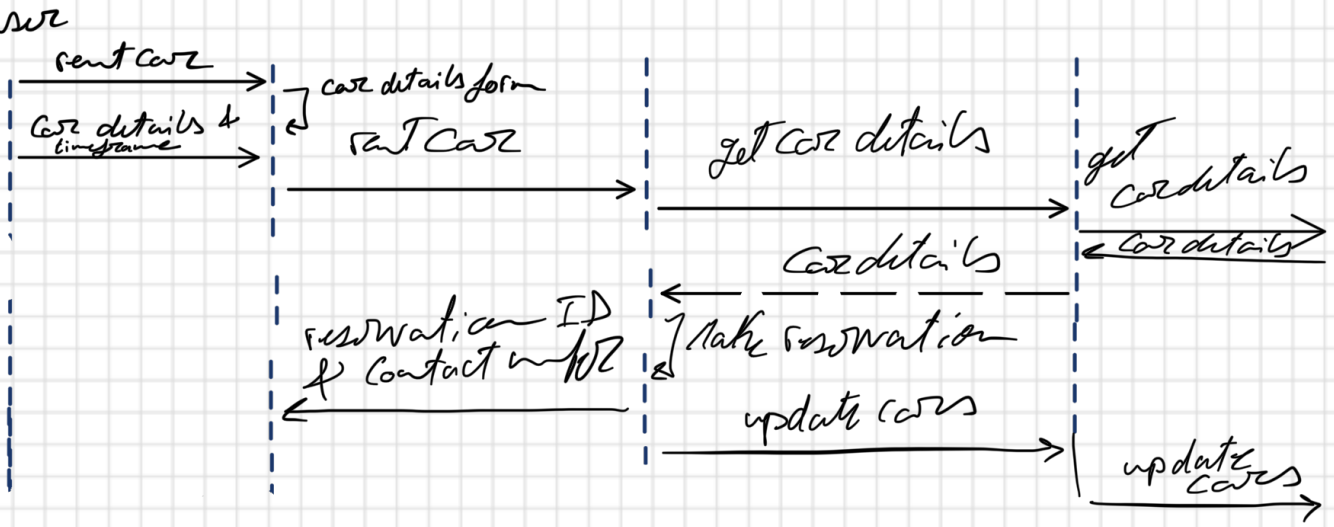 rent car
car details form
Car details &
timeframe
rent Car
get car details
get
car details
car details
Car details
reservation ID
& Contact infor
Make reservation
update cars
update
cars